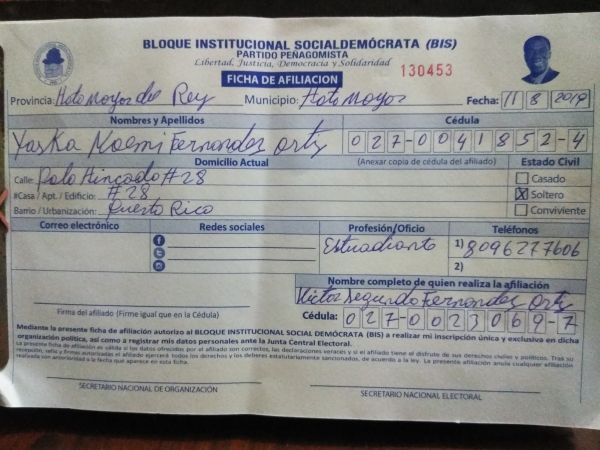 BLOQUE INSTITUCIONAL SOCIALDEMÓCRATA (BIS)
PARTIDO PEÑAGOMISTA
Libertad, Justicia, Democracia y Solidaridad
FICHA DE AFILIACION
130453
Provincia: Hato Mayor del Rey Municipio: Hato Mayor Fecha: 11 8 2019
Nombres y Apellidos Cédula
Yaska Noemi Fernandez Ortiz 027-0041852-4
Domicilio Actual (Anexar copia de cédula del afiliado) Estado Civil
Calle: Polo Hincado #28 Casado
#Casa / Apt. / Edificio: #28 X Soltero
Barrio / Urbanización: Puerto Rico Conviviente
Correo electrónico Redes sociales Profesión/Oficio Teléfonos
Estudiante 1) 8096277606
2)
Nombre completo de quien realiza la afiliación
Victor Segundo Fernandez Ortiz
Firma del afiliado (Firme igual que en la Cédula) Cédula: 027-0023069-7
Mediante la presente ficha de afiliación autorizo al BLOQUE INSTITUCIONAL SOCIAL DEMÓCRATA (BIS) a realizar mi inscripción única y exclusiva en dicha
organización política, así como a registrar mis datos personales ante la Junta Central Electoral.
La presente ficha de afiliación es válida si los datos ofrecidos por el afiliado son correctos, las declaraciones veraces y si el afiliado tiene el disfrute de sus derechos civiles y políticos. Tras su
recepción, sello y firmas autorizadas el afiliado ejercerá todos los derechos y los deberes estatutariamente sancionados, de acuerdo a la ley. La presente afiliación anula cualquier afiliación
realizada con anterioridad a la fecha que aparece en esta ficha.
SECRETARIO NACIONAL DE ORGANIZACIÓN SECRETARIO NACIONAL ELECTORAL